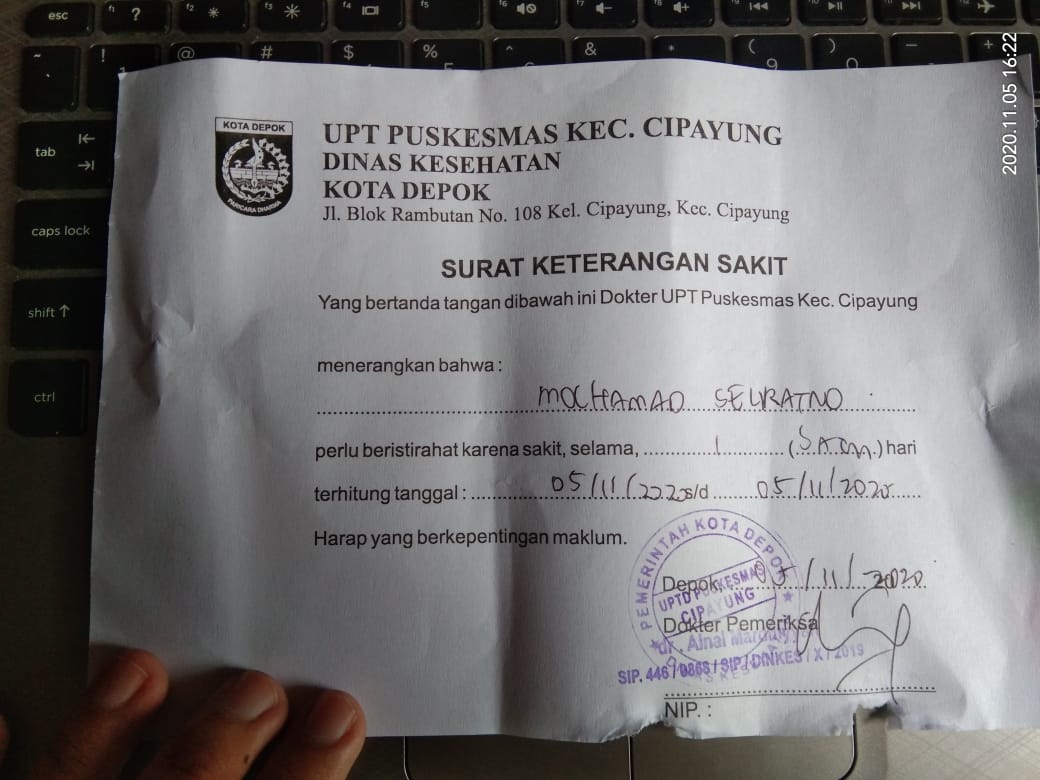 esc
?
tab
caps lock
shift
ctrl
! @ # $ % ^ & * ( ) — +
2020.11.05 16:22
KOTA DEPOK
PARICARA DHARMA
UPT PUSKESMAS KEC. CIPAYUNG
DINAS KESEHATAN
KOTA DEPOK
Jl. Blok Rambutan No. 108 Kel. Cipayung, Kec. Cipayung
SURAT KETERANGAN SAKIT
Yang bertanda tangan dibawah ini Dokter UPT Puskesmas Kec. Cipayung
menerangkan bahwa :
MOCHAMAD
perlu beristirahat karena sakit, selama, 1 (Satu) hari
terhitung tanggal : 05/11/2020 s/d 05/11/2020
Harap yang berkepentingan maklum.
PEMERINTAH KOTA DEPOK
UPTD PUSKESMAS
CIPAYUNG
Depok, 05/11/2020
Dokter Pemeriksa
dr. Ainal
SIP. 446 / 0868 / SIP / DINKES / X / 2019
NIP. :